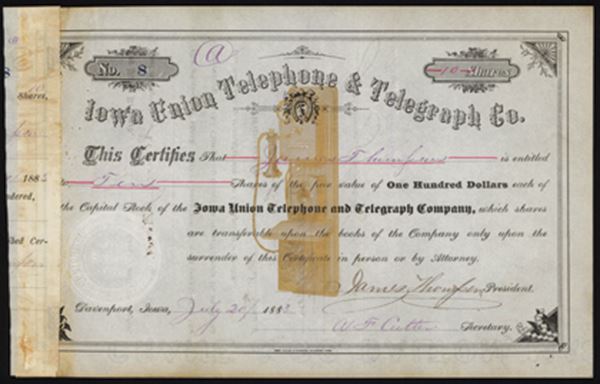 (A)
No. 8
10 Shares
Iowa Union Telephone & Telegraph Co.
Shares,
This Certifies That James Thompson is entitled
1883
to Ten Shares of the par value of One Hundred Dollars each of
the Capital Stock of the Iowa Union Telephone and Telegraph Company, which shares
are transferable upon the books of the Company only upon
surrender of this Certificate in person or by Attorney.
James Thompson President.
Davenport, Iowa, July 20 1883
W F Cutter Secretary.